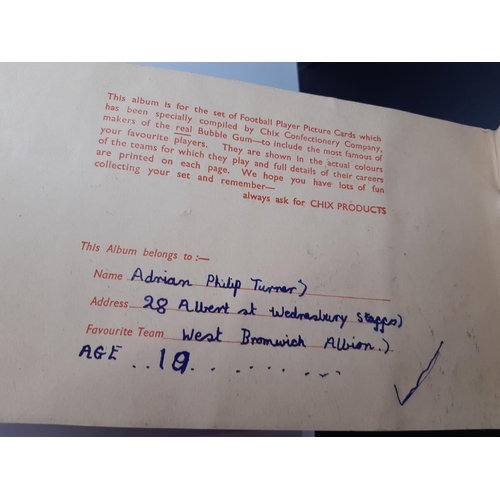 This album is for the set of Football Player Picture Cards which
has been specially compiled by Chix Confectionery Company,
makers of the real Bubble Gum—to include the most famous of
your favourite players. They are shown in the actual colours
of the teams for which they play and full details of their careers
are printed on each page. We hope you have lots of fun
collecting your set and remember—
always ask for CHIX PRODUCTS
This Album belongs to :—
Name Adrian Philip Turner)
Address 28 Albert st Wednesbury Staffs)
Favourite Team West Bromwich Albion.)
AGE ..19. . . . . . . . .